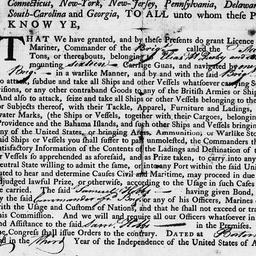 Connecticut, New-York, New-Jersey, Pennsylvania, Delawar
South-Carolina and Georgia, TO ALL unto whom these P
KNOW YE,
THAT We have granted, and by these Presents do grant Licence
Mariner, Commander of the Brig called the
Tons, or thereabouts, belonging
mounting Carriage Guns, and navigated by
Brig in a warlike Manner, and by and with the said Brig
to attack, subdue and take all Ships and other Vessels whatsoever carrying S
visions, or any other contraband Goods to any of the British Armies or Ship
And also to attack, seize and take all Ships or other Vessels belonging to the
or Subjects thereof, with their Tackle, Apparel, Furniture and Ladings,
water Marks, (the Ships or Vessels, together with their Cargoes, belonging
Providence and the Bahama Islands, and such other Ships and Vessels bringing
any of the United States, or bringing Arms, Ammunition, or Warlike Stores
said Ships or Vessels you shall suffer to pass unmolested, the Commanders
satisfactory Information of the Contents of the Ladings and Destination of
her Vessels so apprehended as aforesaid, and as Prize taken, to carry into any
neutral State willing to admit the same, or into any Port within the said United
ated to hear and determine Causes Civil and Maritime, may proceed in due
adjudged lawful Prize, or otherwise, according to the Usage in such Cases
be carried. The said Samuel having given Bond,
by the said Commander of Brig or any of his Officers, Mariners
with the Usage and Customs of Nations, and that he shall not exceed or tra
this Commission. And we will and require all our Officers whatsoever in
and Assistance to the said in the Premises.
the Congress shall issue Orders to the contrary. DATED at
and in the third Year of the Independence of the United States of A